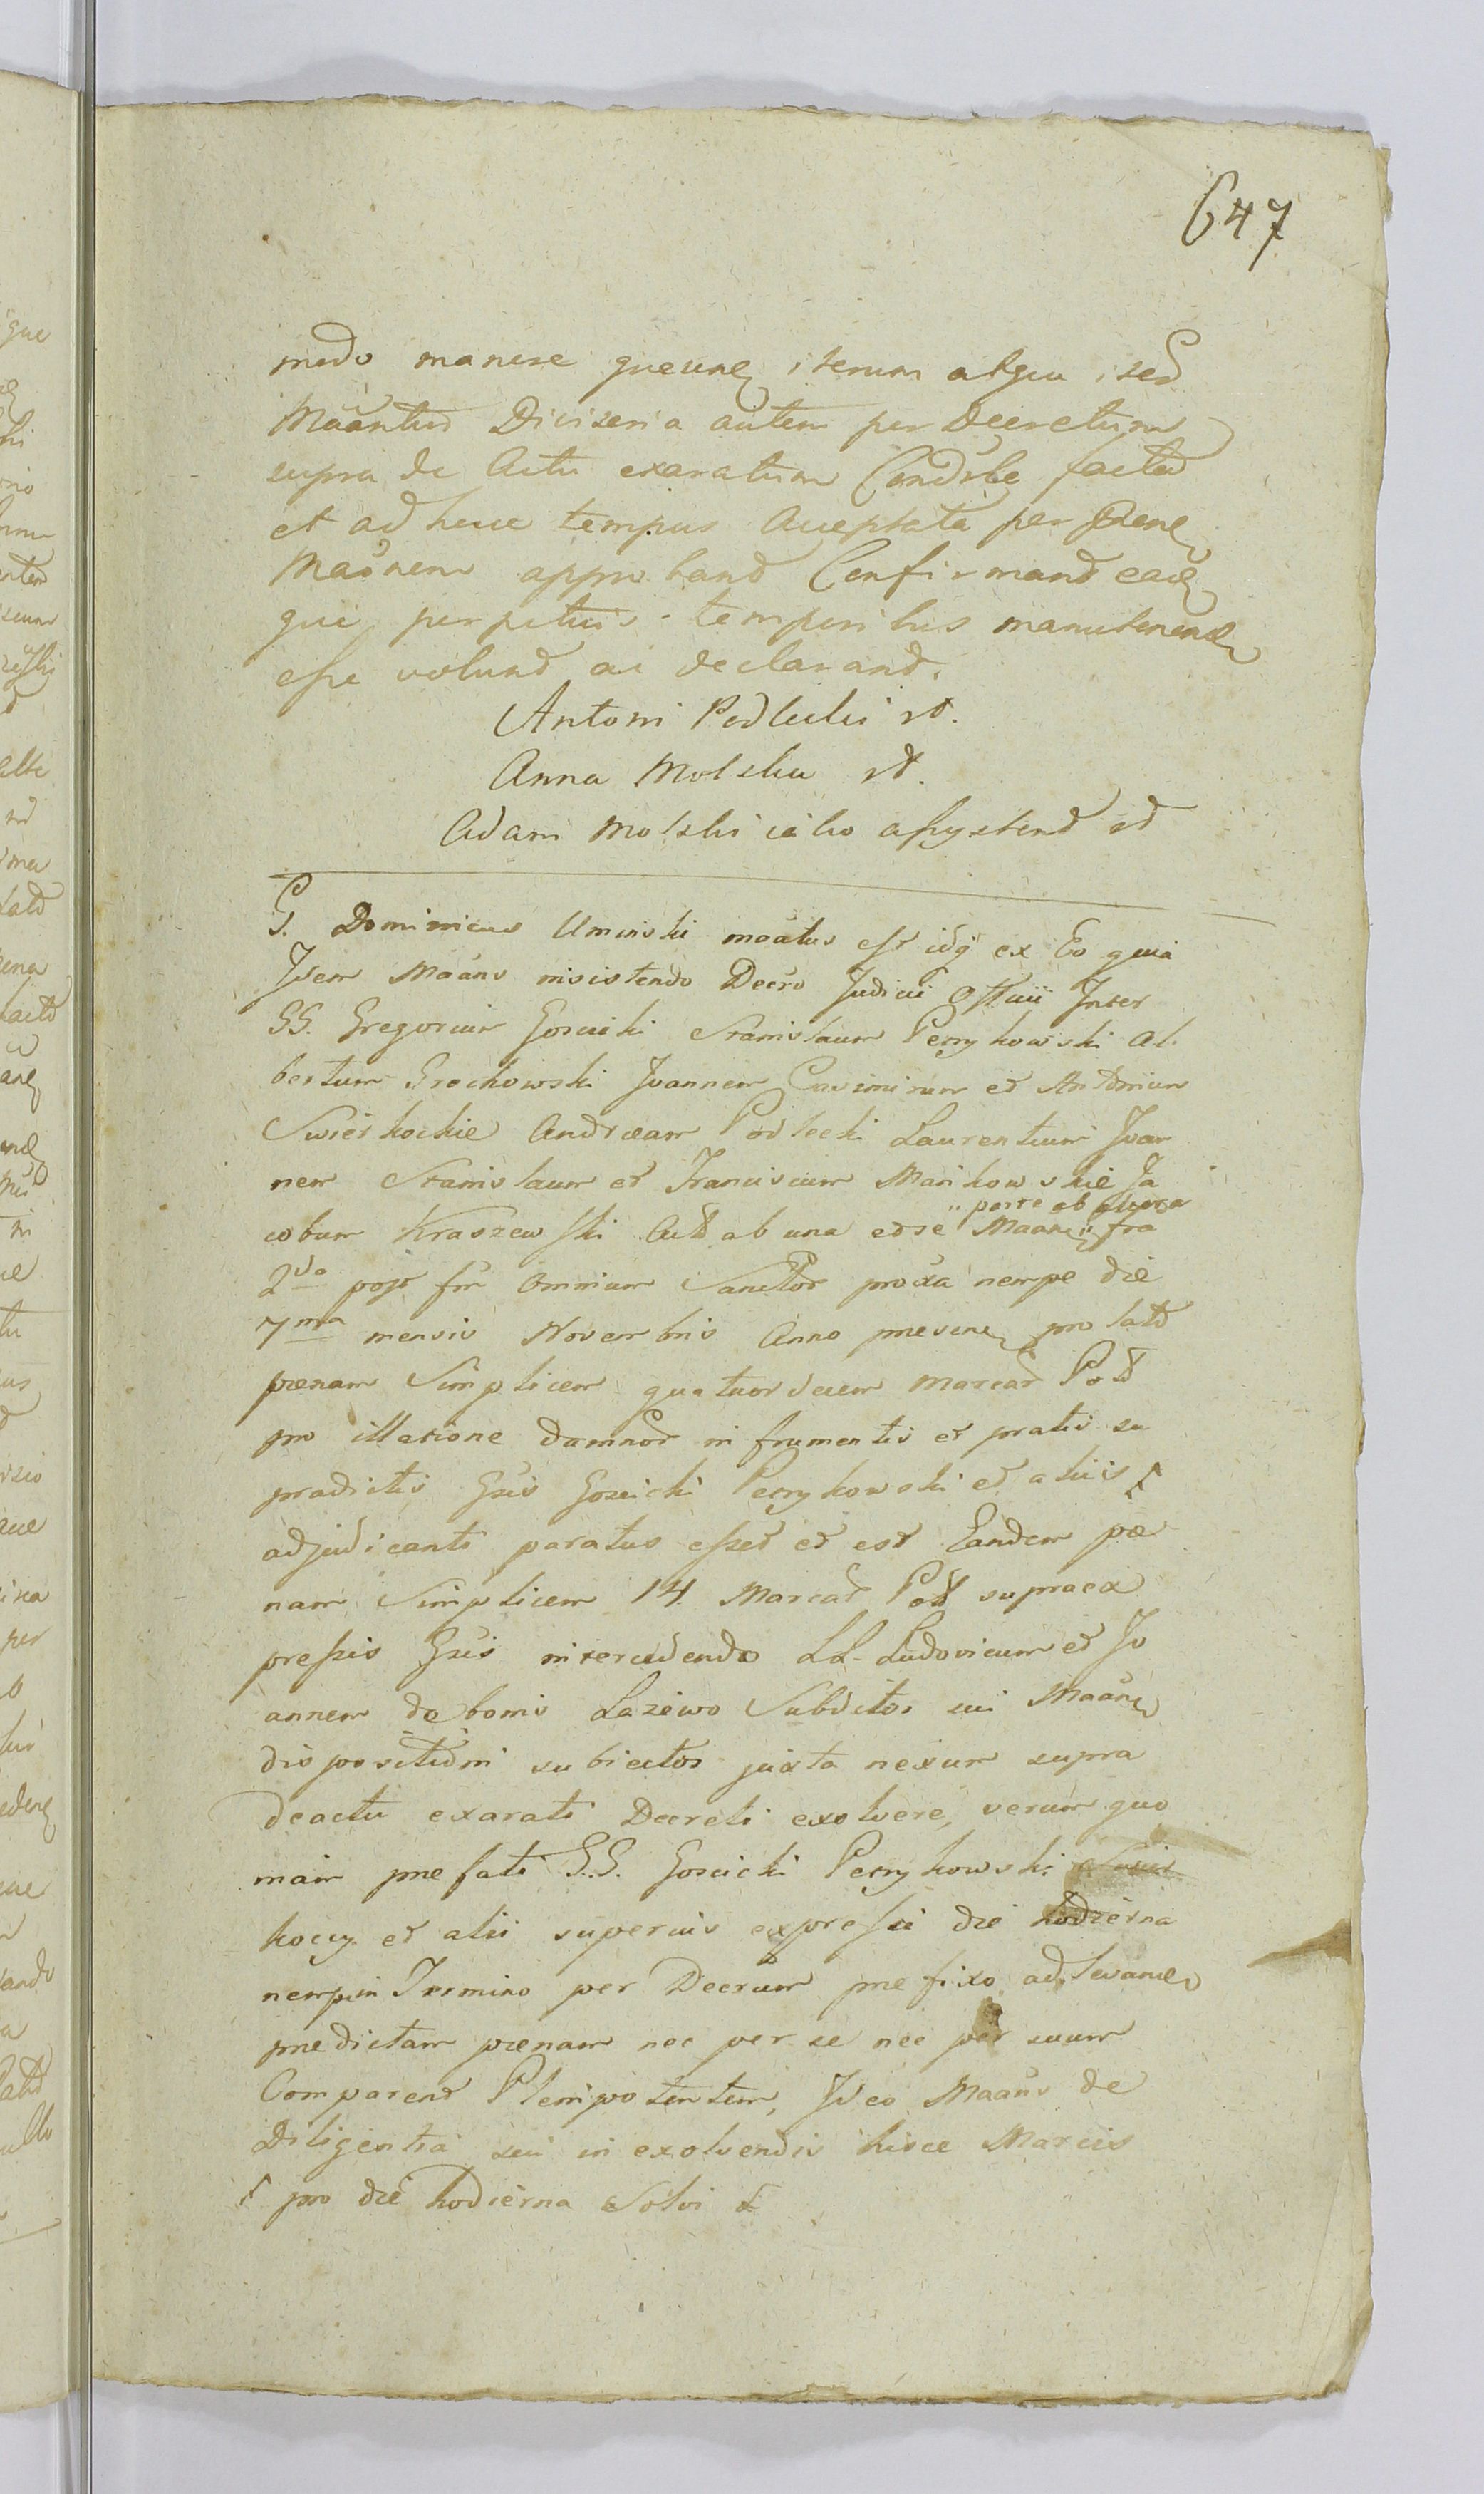 647
modo manere queunę iterum atque ised
Maantud Divisenia autem per Decretum
supra de Actu exaratum Condrbę factad
et ad hucce tempus Acceptata per Prene
Maanem approband Confirmand eadę
que perpetuis temporibus manutenendę
esse volund ac declarand.
Antoni Podlecki st.
Anna Molska st.
Adam Molski iako assystend st
G. Dominicus Uminski maatus est idq ex Eo quia
Idem Maans insistendo Decro Judicii Officii Inter
GG. Gregorium Goscicki Stanislaum Perzykowski Al
bertum Grochowski Joannem Casimirum et Antonium
Swierkockie Andream Podlecki Laurentium Joan
nem Stanislaum et Franciscum Mankowskie Ja
cobum Kraszewski Actd ab una et se Maanę fra
" parte ab altera
2da post fm Omnium Sanctor proxa nempe die
7ma mensis Novembris Anno presenę pro latd
pœnam Simplicem quatuordecem marcar Poll
pro illatione damnor in frumentis et pratis su
pradictis Gsis Goscicki Perzykowski et aliis
adjudicanti paratus esset et est Eandem pœ
nam Simplicem 14 Marcar Poll supraex
pressis Gsis intercedendo LL. Ludovicum et Jo
annem de bonis Lazewo Subditos sui Maanę
dispositioni subiectos juxta nexum supra
deactu exarati Decreti exolvere, verum quo
niam prefati G.G. Goscicki Perzykowski Swier
koccy et alii superius expressi die hodierna
nempe in Termino per Decrum prefixo ad levanę
predictam pœnam nec per se nec per suum
Comparent Plenipotentem, Ideo Maans de
Diligentia sui in exolvendis hisce Marcis
pro die hodierna Solvi &